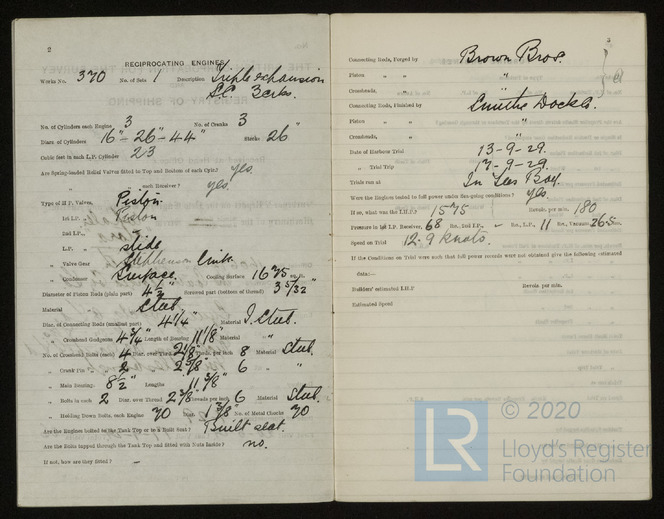 2
RECIPROCATING ENGINES
Works No. 370 No. of Sets 1 Description Triple expansion
S.C. 3 crks.
No. of Cylinders each Engine 3 No. of Cranks 3
Diars. of Cylinders 16" - 26" - 44" Stroke 26"
Cubic feet in each L.P. Cylinder 23
Are Spring-loaded Relief Valves fitted to Top and Bottom of each Cylr.? Yes.
" each Receiver? Yes.
Type of H.P. Valves, Piston
1st I.P. " Piston
2nd I.P. "
L.P. " Slide
" Valve Gear Stephenson Link
" Condenser Surface Cooling Surface 1675 sq. ft.
Diameter of Piston Rods (plain part) 4½ Screwed part (bottom of thread) 3 5/32"
Material Steel
Diar. of Connecting Rods (smallest part) 4¼" Material I. Steel.
" Crosshead Gudgeons 4¾" Length of Bearing 11⅛" Material "
No. of Crosshead Bolts (each) 4 Diar. over Thrd. 2⅛" Thrds. per inch 8 Material Steel
" Crank Pin " 2 " 2⅞" " 6 "
" Main Bearings 8½" Lengths 11⅜"
" Bolts in each 2 Diar. over Thread 2⅜" Threads per inch 6 Material Steel
" Holding Down Bolts, each Engine 70 Diar. 1⅜" No. of Metal Chocks 70
Are the Engines bolted to the Tank Top or to a Built Seat? Built seat.
Are the Bolts tapped through the Tank Top and fitted with Nuts Inside? no.
If not, how are they fitted?
3
Connecting Rods, Forged by Brown Bros.
Piston " " "
Crossheads, " "
Connecting Rods, Finished by Smiths Docks.
Piston " "
Crossheads, " "
Date of Harbour Trial 13-9-29.
" Trial Trip 17-9-29.
Trials run at In Tees Bay.
Were the Engines tested to full power under Sea-going conditions? Yes.
If so, what was the I.H.P.? 1575 Revols. per min. 180
Pressure in 1st I.P. Receiver, 68 lbs., 2nd I.P., - lbs., L.P., 11 lbs., Vacuum, 26.5 ins.
Speed on Trial 12.9 knots.
If the Conditions on Trial were such that full power records were not obtained give the following estimated
data:—
Builders' estimated I.H.P. Revols per min.
Estimated Speed
LR © 2020
Lloyd's Register
Foundation